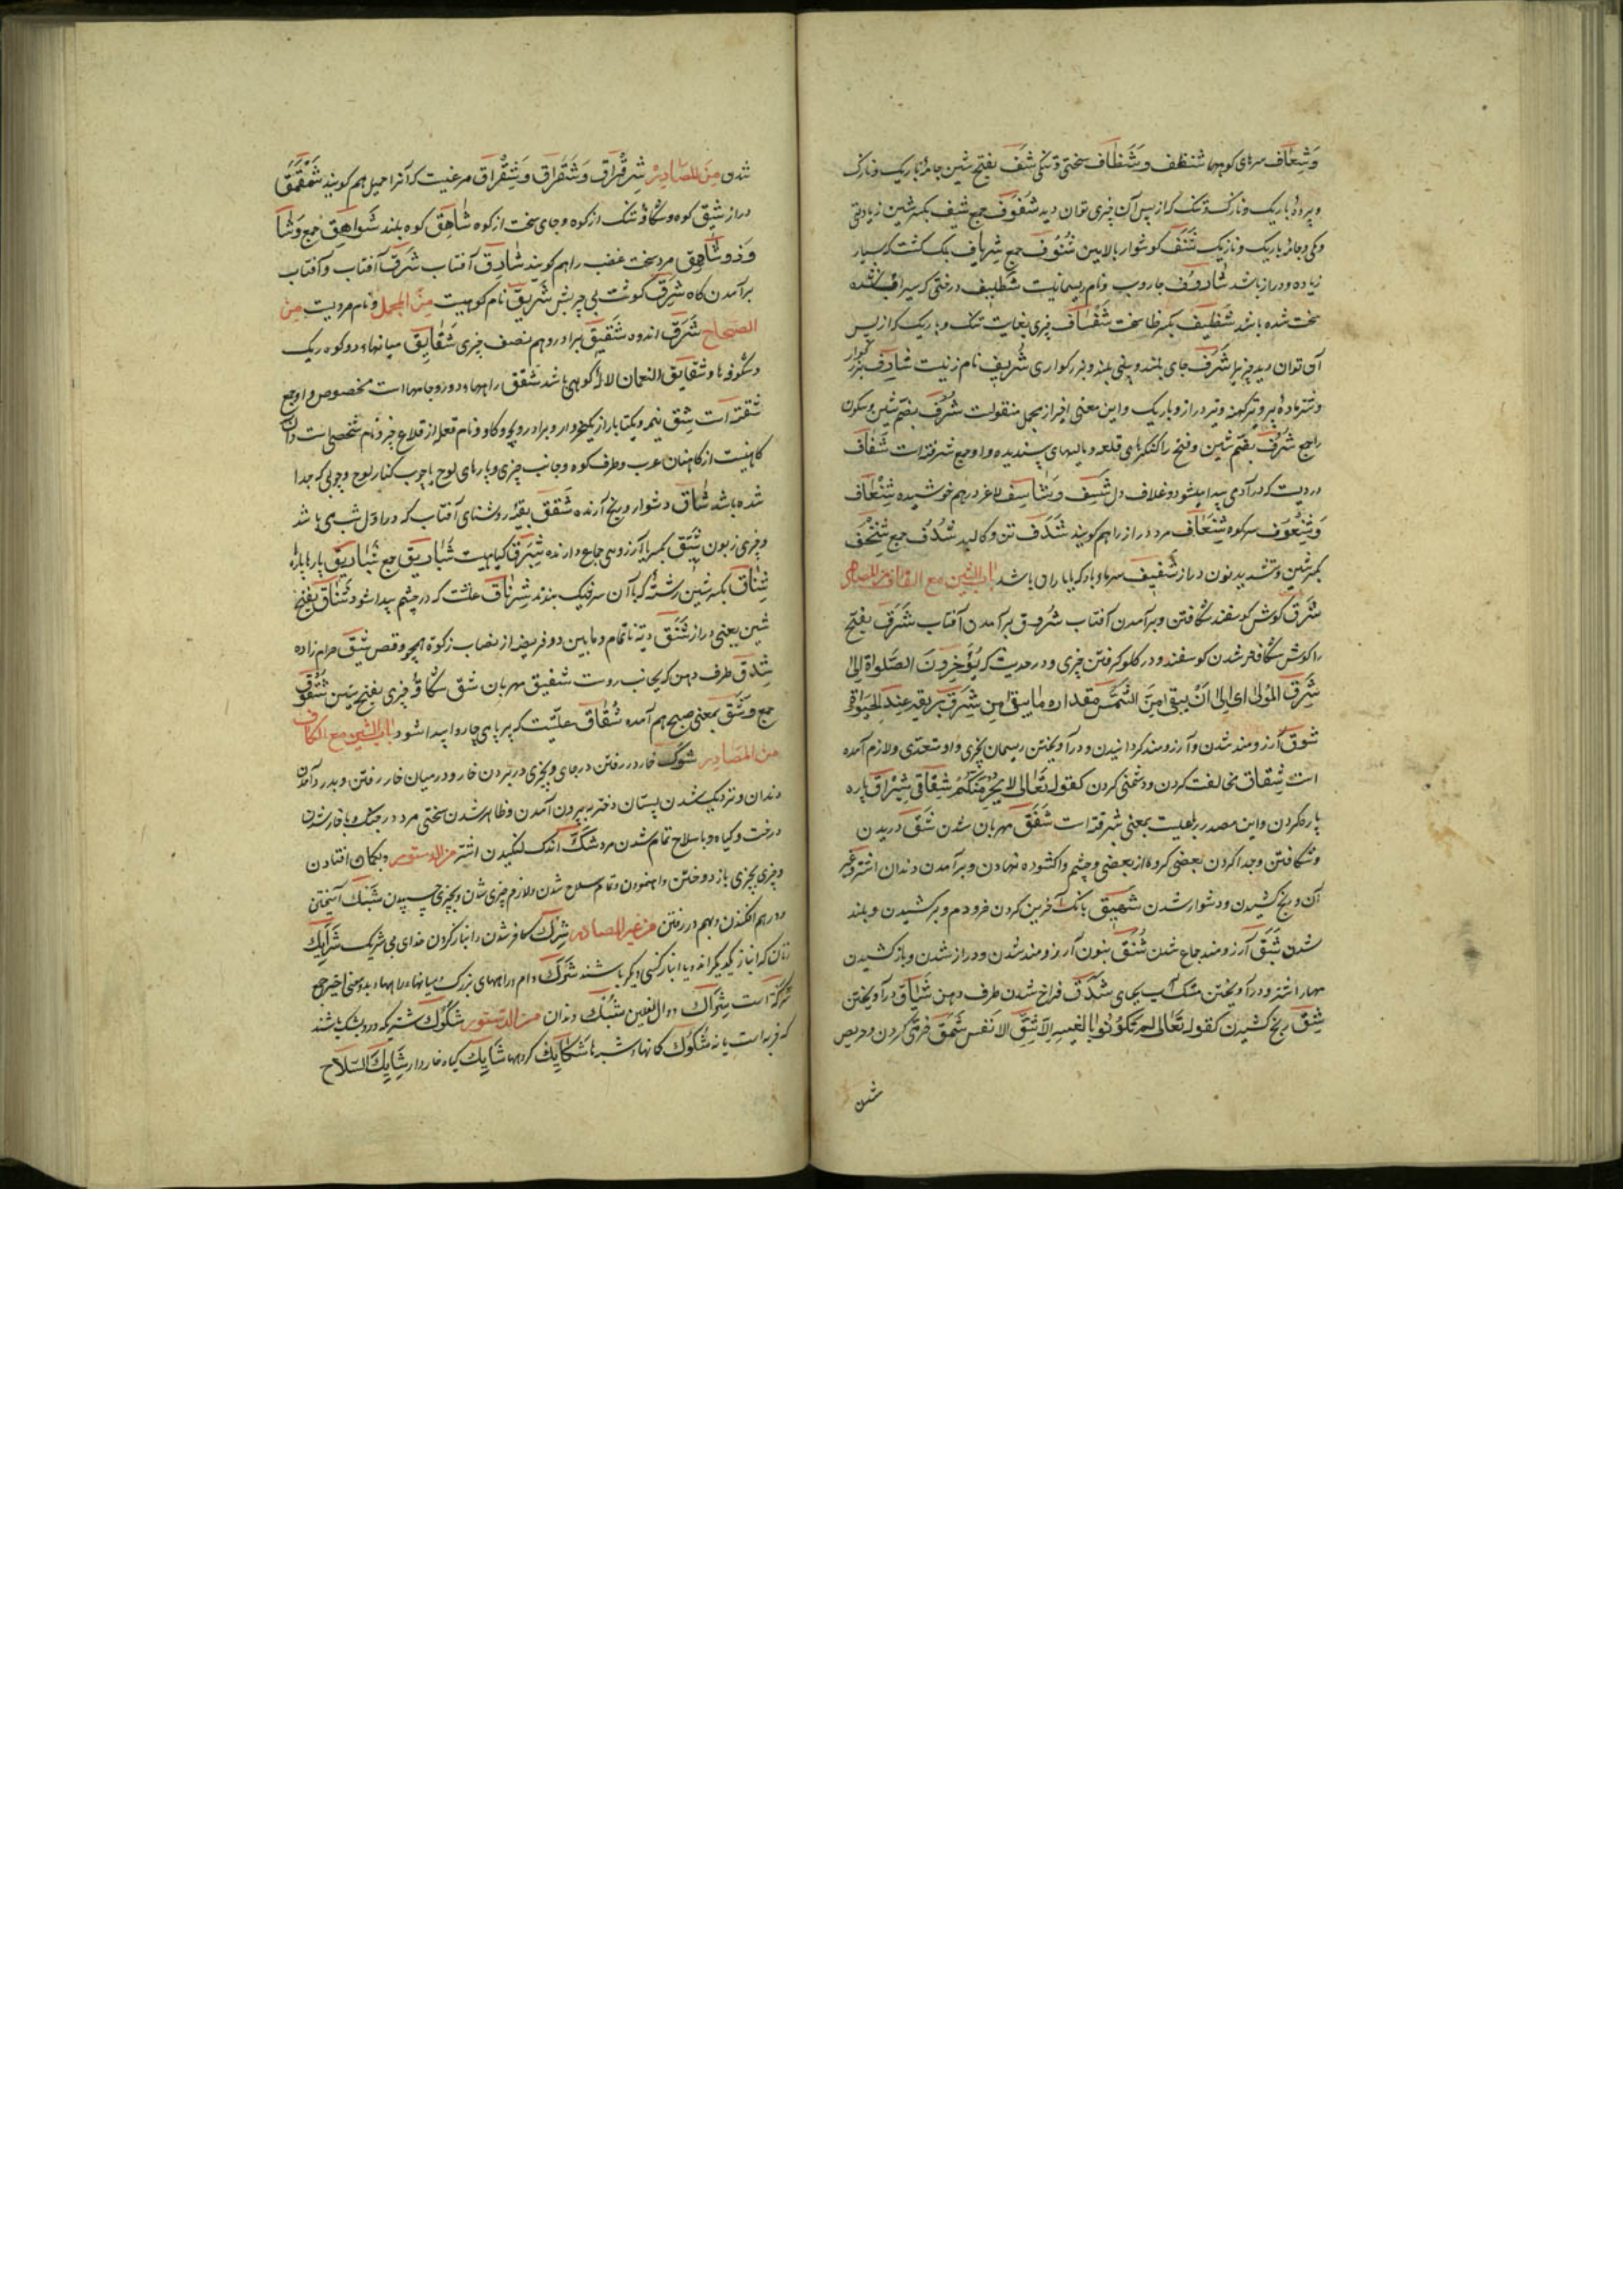 وَشِعَاف سرهای کوهها شَظَف و شَظَاف سختی و تنکی شَفّ بفتح شین جامهٔ باریک و نازک
و پردهٔ باریک و نازک و تنک که از پس آن چیزی توان دید شُفُوف جمع شِفّ بکسر شین زیادتی
و کمی و جامهٔ باریک و نازک شَنْف کوشوار بالایین شُنُوف جمع شِریَاف بک کشت که بسیار
زیاده و دراز باشد شَادُوف جاروب و نام ریسمانیست شَظِیف درختی که سیراب نشده
سخت شده باشد شَظِیف بکسر ظا سخت شَفَّاف چیزی بغایت تنک و باریک که از پس
آن توان دید چیز را شَرَف جای بلند و بینی بلند و بزرکواری شُرَیف نام زنیست شَارِف بزرکوار
و شتر مادهٔ پیر و تیر کهنه و تیر دراز و باریک و این معنی اخیر از مجمل منقولست شُرْف بضم شین و سکون
را جمع شُرَف بضم شین و فتح را کنکرهای قلعه و مالهای پسندیده و او جمع شرفة است شَغَاف
دردیست که در آدمی پیدا میشود و غلاف دل شَسِف و شَاسِف لاغر درهم خوشیده شِنْعَاف
و شُنْعُوف سر کوه شِنْعَاف مرد دراز را هم کویند شَدَف تن و کالبد شُدُف جمع شِنَّخْف
بکسر شین و تشدید نون دراز شَفِیف سرما و باد که با باران باشد باب الشین مع القاف من المصادر
شَرْق کوش کوسفند شکافتن و بر آمدن آفتاب شُرُوق بر آمدن آفتاب شَرَق بفتح
را کوش شکافته شدن کوسفند و در کلو کرفتن چیزی و در حدیث که یُؤَخِّرُونَ الصَّلٰوةَ اِلٰی
شَرَقِ المَوْتٰی ای اِلٰی اَنْ یَبْقٰی مِنَ الشَّمْسِ مقداره ما یبقی مِن شَرَقٍ بریقه عِند الحَیٰوة
شَوْق آرزومند شدن و آرزومند کردانیدن و در آویختن ریسمان بچیزی و او متعدی و لازم آمده
است شِقَاق مخالفت کردن و دشمنی کردن کقوله تَعَالٰی لا یَجْرِمَنَّکُمْ شِقَاقِی شِبْرَاق پاره
پاره کردن و این مصدر رباعیست بمعنی شبرقة است شَفَق مهربان شدن شَقّ دریدن
و شکافتن و جدا کردن بعضی کروه از بعضی و چشم وا کشوده نهادن و بر آمدن دندان اشتر و غیر
آن و رنج کشیدن و دشوار شدن شَهِیق بانک آخرین کردن خر و دم و بر کشیدن و بلند
شدن شَبَق آرزومند جماع شدن شَنَق بنون آرزومند شدن و دراز شدن و باز کشیدن
مهار اشتر و در آویختن مشک آب بجای شَدَق فراخ شدن طرف دهن شَنَاق در آویختن
شِقّ رنج کشیدن کقوله تَعَالٰی لَم تَکُونُوا بَالغِیهِ اِلّا بِشِقِّ الانفُس شَمَق خرمی کردن و حریص
شدن
شدن مِنْ المَصَادِر شِرِقْرَاق وَشَقَرَاق وَشِقْرَاق مرغیست که آنرا اخیل هم کویند شَمَقْمَق
دراز شِیق کوه و شکاف تنک از کوه و جای سخت از کوه شَاهِق کوه بلند شَوَاهِق جمع وَشَا
وَذو شَاهِق مرد سخت غضب را هم کویند شَارِق آفتاب شَرْق آفتاب و آفتاب
بر آمدن کاه شَرِق کوشت بی چربش شَرِیق نام کوهیست مِنَ المجمل و نام مردیست مِن
الصحاح شَرَق اندوه شَقِیق برادر و هم نصف چیزی شَقَایِق میانهاء دو کوه ریک
و شکوفها و شقایق النعمان لالهٔ کوهی باشد شُقَق راهها و دور و جامها است مخصوص و او جمع
شقة است شِقّ نیمه و یکتا بار از یکخروار و برادر و نام قلعه از قلاع خیبر و نام شخصی است و آن
کاهنیست از کاهنان عرب و طرف کوه و جانب چیزی و پارهای لوح یا چوب کنار لوح و چوبی که جدا
شده باشد شَاقّ دشوار و رنج آرنده شَفَق بقیهٔ روشنای آفتاب که در اول شب می باشد
و چیزی زبون شَبِق بکسر با آرزومند جماع دارنده شِبْرِق کیاهیست شَبَارِیق جمع شَبَارِیق پاره پاره
شِنَاق بکسر شین رشتهٔ که با آن سر خیک بندند شِرْنَاق علتست که در چشم پیدا شود شَنَاق بفتح
شین یعنی دراز شَنَق دیت ناتمام و ما بین دو فریضه از نصاب زکوة همچو وقص شَنِیق حرام زاده
شِدْق طرف دهن که بجانب روست شَفِیق مهربان شَقّ شکاف چیزی بفتح شین شُقُوق
جمع و شَقّ بمعنی صبح هم آمده شُقَاق علّتست که بر پای چاروا پیدا شود باب الشین مع الکاف
من المَصَادِر شَوْک خار در رفتن در جای و بچیزی در بردن خار و در میان خار رفتن و بدر آمدن
دندان و نزدیک شدن پستان دختر به بیرون آمدن و ظاهر شدن سختی مرد در جنک و با خار شدن
درخت و کیاه و با سلاح تمام شدن مرد شَکّ اندک لنکیدن اشتر من الدستور و بکمان افتادن
و چیزی بچیزی باز دوختن و تمام سلاح شدن و لازم چیزی شدن و بچیزی چسپیدن شَبْک آمیختن
و درهم افکندن و بهم در رفتن من غیر المصادر شِرْک کافر شدن و انباز کردن خدای بی شریک شَرَایِک
زنان که انباز یکدیکراند و یا انباز کسی دیکر باشند شَرَک دام و راههای بزرک و میانهاء راهها و بدو معنی اخیر جمع
شرکة است شِرَاک دوال نعلین شُبُک دندان من الدستور شَکُوک شتریکه در و بشک باشند
که فربه است یا نه شُکُوک کمانها و شبها شَکَایِک کروهها شَایِک کیاه خاردار شَایِکُ السِّلَاح